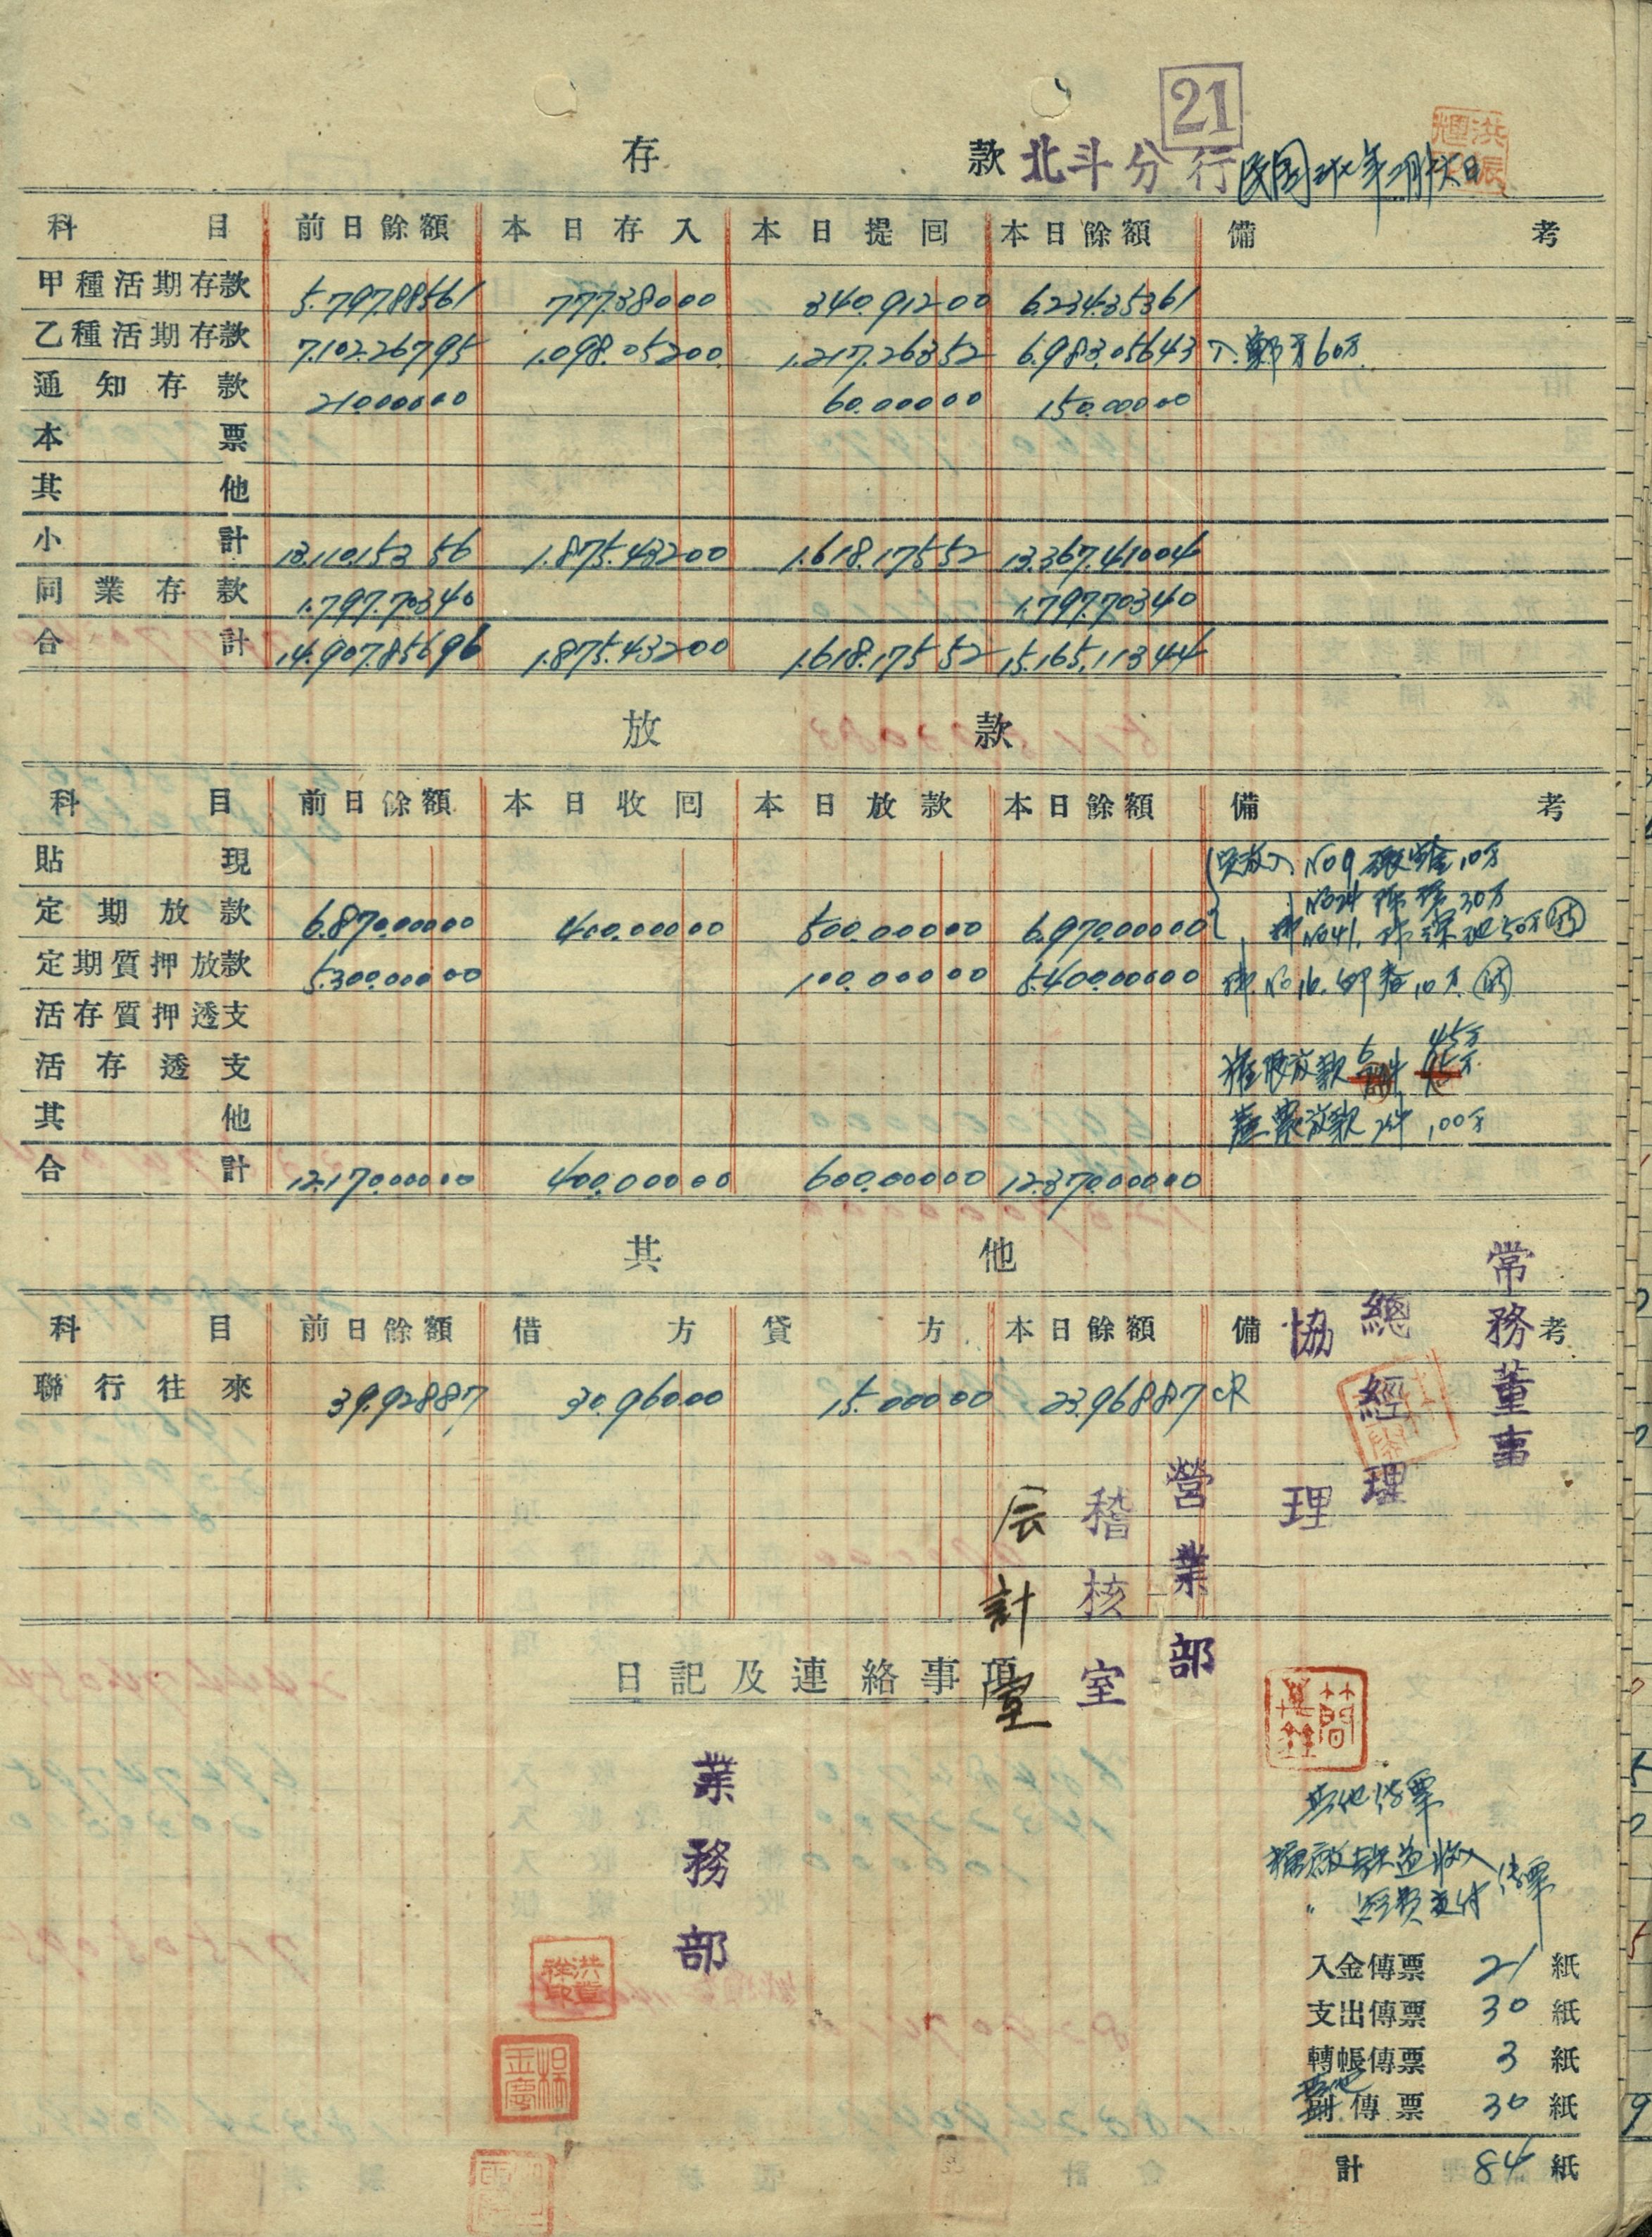 21
存款 北斗分行 民国卅七年二月十六日
科目 前日餘額 本日存入 本日提囘 本日餘額 備考
甲種活期存款 5.797.88561 777.380.00 340.912.00 6.234.353.61
乙種活期存款 7.102.267.95 1.098.052.00 1.217.263.52 6.983.056.43 60万
通知存款 210.000.00 60.000.00 150.000.00
本票
其他
小計 13.110.153.56 1.875.432.00 1.618.175.52 13.367.410.04
同業存款 1.797.703.40 1.797.703.40
合計 14.907.856.96 1.875.432.00 1.618.175.52 15.165.113.44
放款
科目 前日餘額 本日收囘 本日放款 本日餘額 備考
貼現 No9 10万
No24 30万
定期放款 6.870.000.00 400.000.00 500.000.00 6.970.000.00 No41. 50万
定期質押放款 5.300.000.00 100.000.00 5.400.000.00 No16. 10万
活存質押透支
活存透支 權限放款 45万
其他 放款 2件 100万
合計 12.170.000.00 400.000.00 600.000.00 12.370.000.00
其他
科目 前日餘額 借方 貸方 本日餘額 備考
聯行往來 39.928.87 30.960.00 15.000.00 23.968.87 CR
常務董事
總經理
協理
營業部
稽核室
会計室
日記及連絡事項
業務部
其他傳票
收入傳票
〃 經費支付
入金傳票 21 紙
支出傳票 30 紙
轉帳傳票 3 紙
其他
副傳票 30 紙
計 84 紙